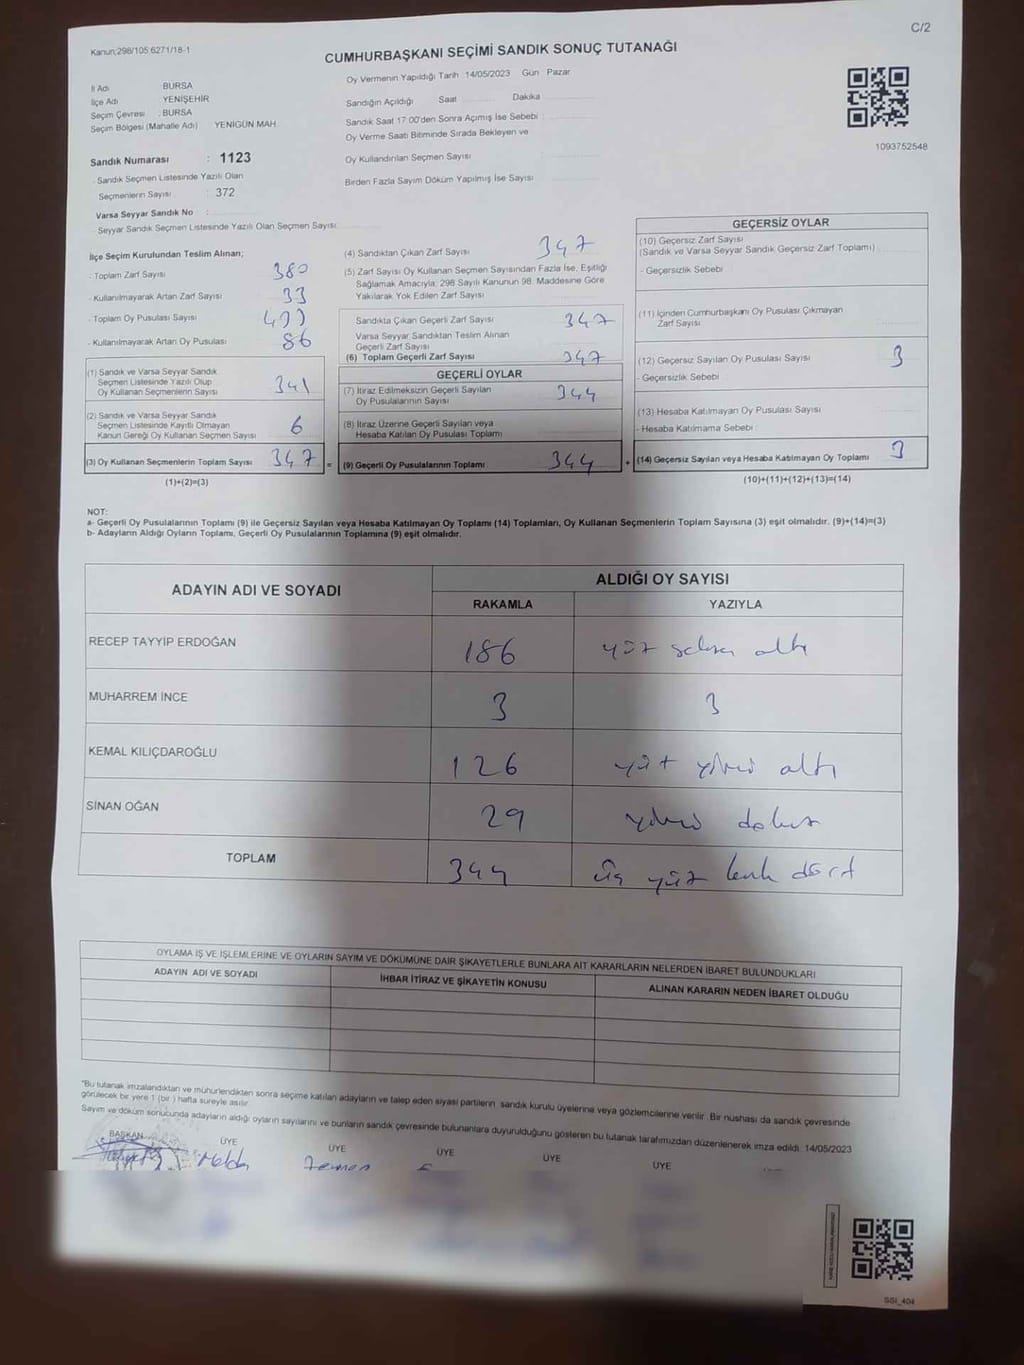 C/2
Kanun;298/105 6271/18-1
CUMHURBAŞKANI SEÇİMİ SANDIK SONUÇ TUTANAĞI
Oy Vermenin Yapıldığı Tarih 14/05/2023 Gün Pazar
İl Adı BURSA
İlçe Adı YENİŞEHİR
Seçim Çevresi : BURSA
Seçim Bölgesi (Mahalle Adı) YENİGÜN MAH.
Sandığın Açıldığı Saat Dakika
Sandık Saat 17:00'den Sonra Açımış İse Sebebi
Oy Verme Saati Bitiminde Sırada Bekleyen ve
Oy Kullandırılan Seçmen Sayısı
Birden Fazla Sayım Döküm Yapılmış İse Sayısı
1093752548
Sandık Numarası : 1123
- Sandık Seçmen Listesinde Yazılı Olan
Seçmenlerin Sayısı : 372
Varsa Seyyar Sandık No :
- Seyyar Sandık Seçmen Listesinde Yazılı Olan Seçmen Sayısı:
İlçe Seçim Kurulundan Teslim Alınan;
- Toplam Zarf Sayısı 380
- Kullanılmayarak Artan Zarf Sayısı 33
- Toplam Oy Pusulası Sayısı
- Kullanılmayarak Artan Oy Pusulası 86
(1) Sandık ve Varsa Seyyar Sandık
Seçmen Listesinde Yazılı Olup
Oy Kullanan Seçmenlerin Sayısı 341
(2) Sandık ve Varsa Seyyar Sandık
Seçmen Listesinde Kayıtlı Olmayan
Kanun Gereği Oy Kullanan Seçmen Sayısı 6
(3) Oy Kullanan Seçmenlerin Toplam Sayısı 347 =
(1)+(2)=(3)
(4) Sandıktan Çıkan Zarf Sayısı 347
(5) Zarf Sayısı Oy Kullanan Seçmen Sayısından Fazla İse, Eşitliği
Sağlamak Amacıyla; 298 Sayılı Kanunun 98. Maddesine Göre
Yakılarak Yok Edilen Zarf Sayısı
Sandıkta Çıkan Geçerli Zarf Sayısı 347
Varsa Seyyar Sandıktan Teslim Alınan
Geçerli Zarf Sayısı
(6) Toplam Geçerli Zarf Sayısı 347
GEÇERLİ OYLAR
(7) İtiraz Edilmeksizin Geçerli Sayılan
Oy Pusulalarının Sayısı 344
(8) İtiraz Üzerine Geçerli Sayılan veya
Hesaba Katılan Oy Pusulası Toplamı
(9) Geçerli Oy Pusulalarının Toplamı 344 +
GEÇERSİZ OYLAR
(10) Geçersiz Zarf Sayısı
(Sandık ve Varsa Seyyar Sandık Geçersiz Zarf Toplamı)
- Geçersizlik Sebebi
(11) İçinden Cumhurbaşkanı Oy Pusulası Çıkmayan
Zarf Sayısı
(12) Geçersiz Sayılan Oy Pusulası Sayısı 3
- Geçersizlik Sebebi
(13) Hesaba Katılmayan Oy Pusulası Sayısı
- Hesaba Katılmama Sebebi
(14) Geçersiz Sayılan veya Hesaba Katılmayan Oy Toplamı 3
(10)+(11)+(12)+(13)=(14)
NOT:
a- Geçerli Oy Pusulalarının Toplamı (9) ile Geçersiz Sayılan veya Hesaba Katılmayan Oy Toplamı (14) Toplamları, Oy Kullanan Seçmenlerin Toplam Sayısına (3) eşit olmalıdır. (9)+(14)=(3)
b- Adayların Aldığı Oyların Toplamı, Geçerli Oy Pusulalarının Toplamına (9) eşit olmalıdır.
ADAYIN ADI VE SOYADI ALDIĞI OY SAYISI
RAKAMLA YAZIYLA
RECEP TAYYİP ERDOĞAN 186 yüz seksen altı
MUHARREM İNCE 3 3
KEMAL KILIÇDAROĞLU 126 yüz yirmi altı
SİNAN OĞAN 29 yirmi dokuz
TOPLAM 344 üç yüz kırk dört
OYLAMA İŞ VE İŞLEMLERİNE VE OYLARIN SAYIM VE DÖKÜMÜNE DAİR ŞİKAYETLERLE BUNLARA AİT KARARLARIN NELERDEN İBARET BULUNDUKLARI
ADAYIN ADI VE SOYADI İHBAR İTİRAZ VE ŞİKAYETİN KONUSU ALINAN KARARIN NEDEN İBARET OLDUĞU
"Bu tutanak imzalandıktan ve mühürlendikten sonra seçime katılan adayların ve talep eden siyasi partilerin sandık kurulu üyelerine veya gözlemcilerine verilir. Bir nüshası da sandık çevresinde
görülecek bir yere 1 (bir ) hafta süreyle asılır.
Sayım ve döküm sonucunda adayların aldığı oyların sayılarını ve bunların sandık çevresinde bulunanlara duyurulduğunu gösteren bu tutanak tarafımızdan düzenlenerek imza edildi. 14/05/2023
BAŞKAN ÜYE ÜYE ÜYE ÜYE ÜYE
SSİ_404